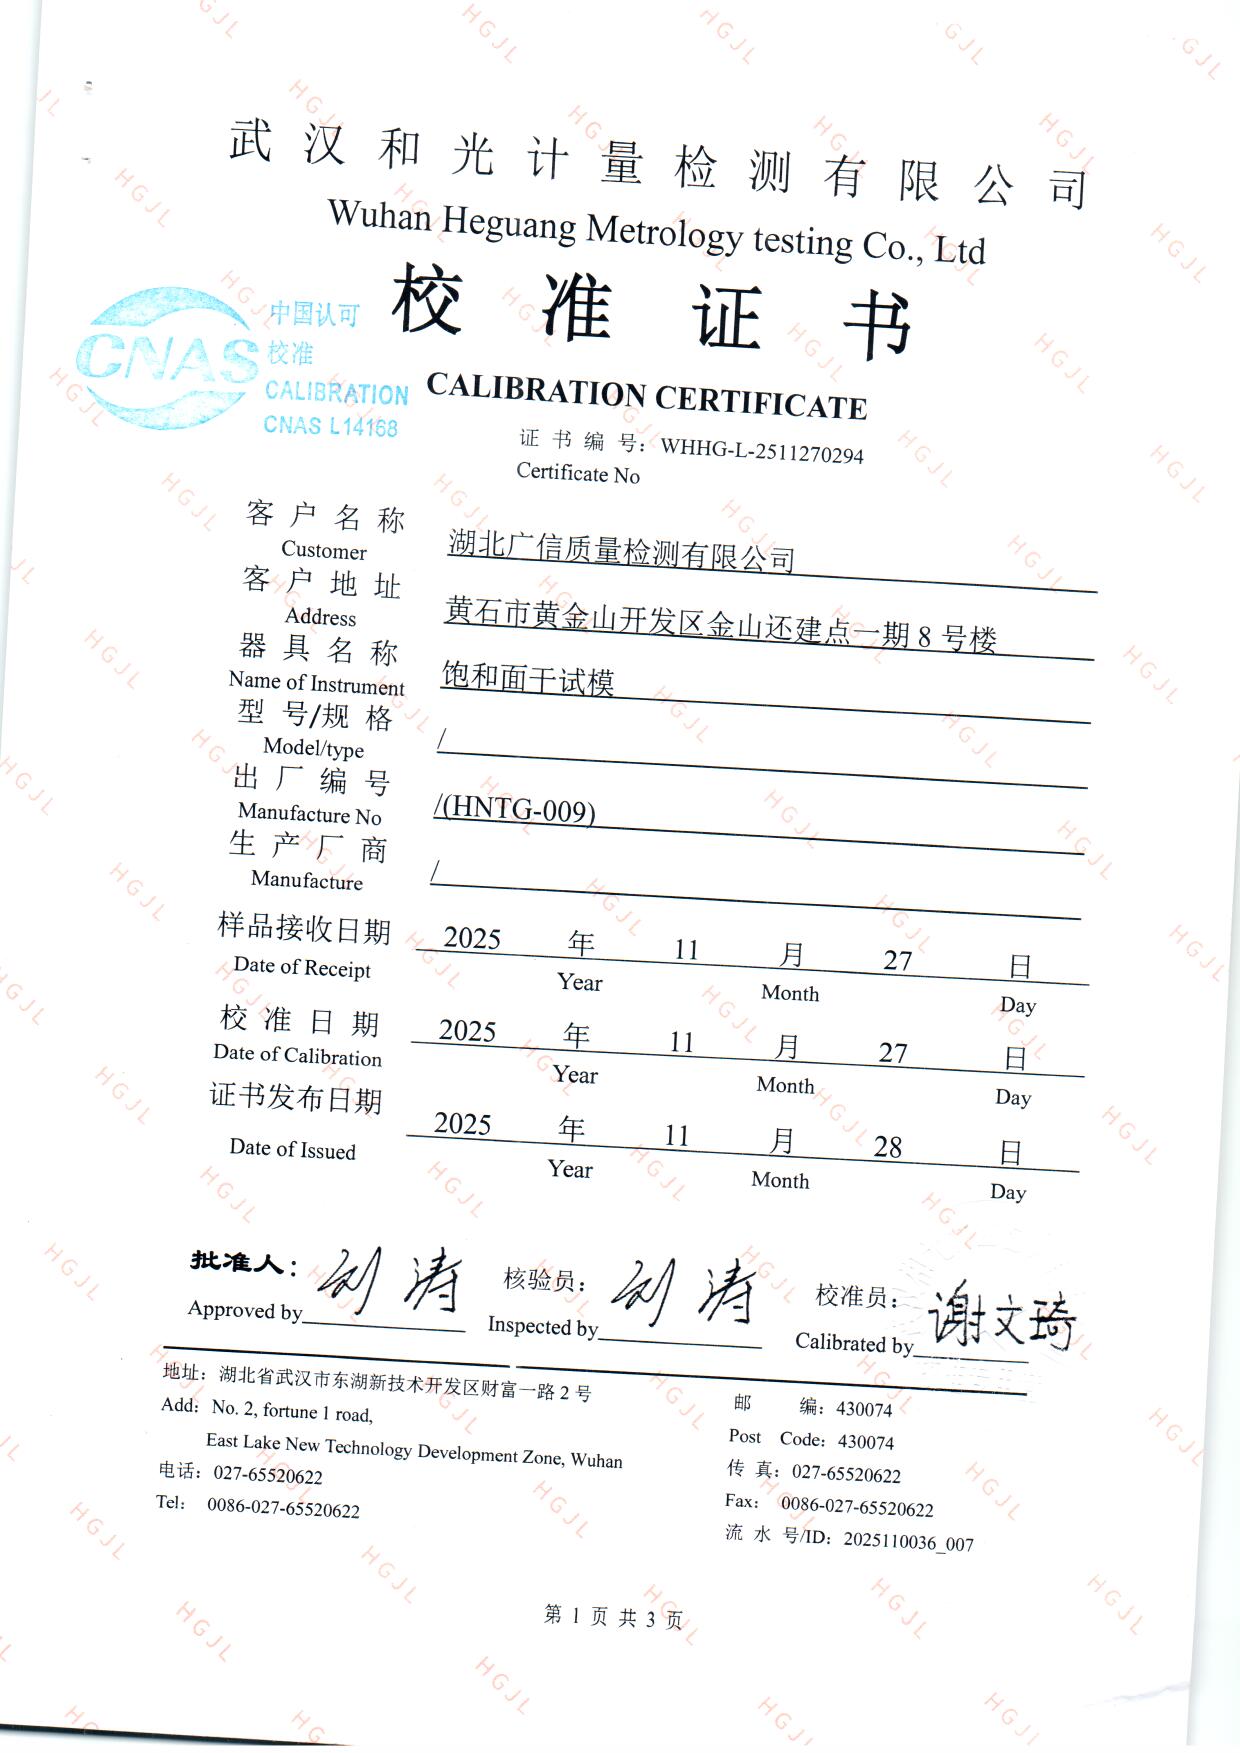 武汉和光计量检测有限公司
Wuhan Heguang Metrology testing Co., Ltd
校准证书
CNAS
中国认可
校准
CALIBRATION
CNAS L14168
CALIBRATION CERTIFICATE
证书编号：WHHG-L-2511270294
Certificate No
客户名称 湖北广信质量检测有限公司
Customer
客户地址 黄石市黄金山开发区金山还建点一期8号楼
Address
器具名称 饱和面干试模
Name of Instrument
型号/规格 /
Model/type
出厂编号 /(HNTG-009)
Manufacture No
生产厂商 /
Manufacture
样品接收日期 2025 年 11 月 27 日
Date of Receipt Year Month Day
校准日期 2025 年 11 月 27 日
Date of Calibration Year Month Day
证书发布日期 2025 年 11 月 28 日
Date of Issued Year Month Day
批准人：刘涛 核验员：刘涛 校准员：谢文琦
Approved by Inspected by Calibrated by
地址：湖北省武汉市东湖新技术开发区财富一路2号
Add: No. 2, fortune 1 road,
East Lake New Technology Development Zone, Wuhan
电话：027-65520622
Tel: 0086-027-65520622
邮 编：430074
Post Code：430074
传 真：027-65520622
Fax: 0086-027-65520622
流 水 号/ID：2025110036_007
第 1 页 共 3 页
HGJL